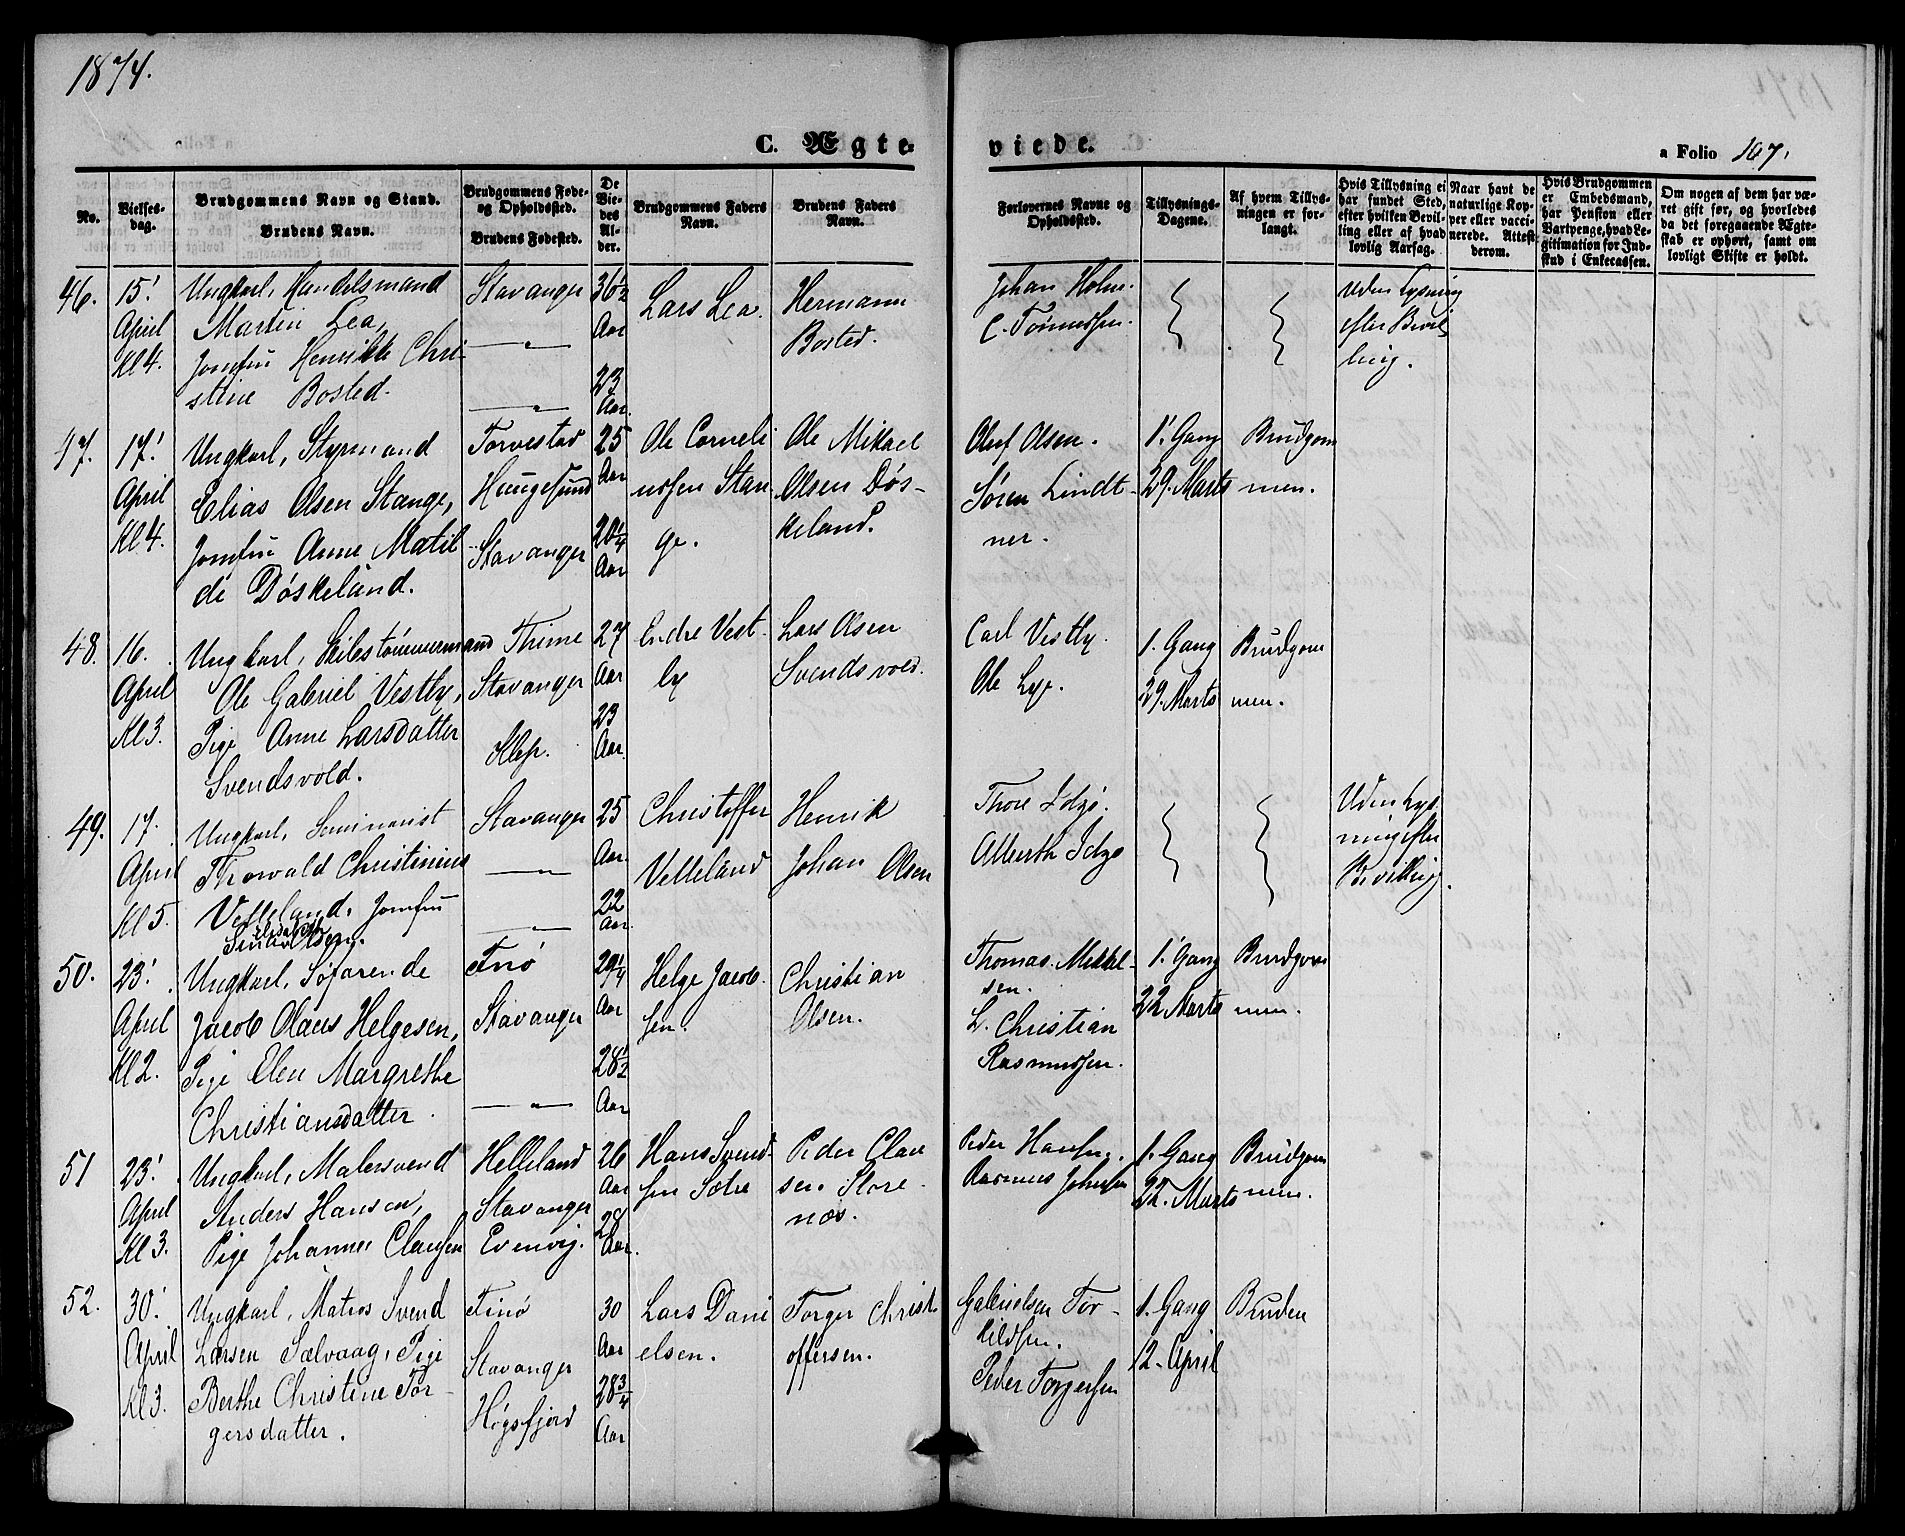 1874.
C. Ægte-
viede.
a Folio 167.
No.
Vielses-
dag.
Brudgommens Navn og Stand.
Brudens Navn.
Brudgommens Føde-
og Opholdssted.
Brudens Fødested.
De
Vie-
des
Al-
der.
Brudgommens Faders
Navn.
Brudens Faders
Navn.
Forlovernes Navne og
Opholdssted.
Tillysnings-
Dagene.
Af hvem Tillys-
ningen er for-
langt.
Hvis Tillysning ei
har fundet Sted,
efter hvilken Bevil-
ling eller af hvad
lovlig Aarsag.
Naar havt de
naturlige Kop-
per eller vacci-
nerede. Attest
derom.
Hvis Brudgommen
er Embedsmand,
har Pension eller
Vartpenge, hvad Le-
gitimation for Ind-
skud i Enkecassen.
Om nogen af dem har væ-
ret gift før, og hvorledes
da det foregaaende Ægte-
skab er ophørt, samt om
lovligt Skifte er holdt.
46.
15'
April
Kl 4.
Ungkarl, Handelsmand
Martin Lea,
Jomfru Henrikke Chri-
stine Bosted.
Stavanger
—"—
—"—
36½
Aar
23
Aar.
Lars Lea.
Hermann
Bosted.
Johan Holm.
C. Tønnessen.
Uden Lysning
efter Bevil
ling.
47.
17'
April
Kl 4.
Ungkarl, Styrmand
Elias Olsen Stange,
Jomfru Anne Matil
de Døskeland.
Torvestad
Haugesund
Stavanger
25
Aar
20¼
Aar
Ole Corneli
ussen Stan
ge.
Ole Mikael
Olsen Døs-
keland.
Oluf Olsen.
Søren Lindt-
ner.
1' Gang
29. Marts
Brudgom
men.
48.
16.
April
Kl 3.
Ungkarl, Skibstømmermand
Ole Gabriel Vestly,
Pige Anne Larsdatter
Svendsvold.
Thime
Stavanger
Klep.
27
Aar
23
Aar.
Endre Vest
ly
Lars Olsen
Svendsvold.
Carl Vestly.
Ole Lye.
1. Gang
29. Marts
Brudgom
men.
49.
17.
April
Kl 5.
Ungkarl, Seminarist
Thorvald Christinius
Velleland, Jomfru
Elisabeth
Olsen.
Stavanger
—"—
—"—
25
Aar.
22
Aar.
Christoffer
Velleland
Henrik
Johan Olsen
Thore Idsø.
Alberth Idsø
Uden Lys
ning efter
Bevilling.
50.
23'
April
Kl 2.
Ungkarl, Søfarende
Jacob Olaus Helgesen,
Pige Elen Margrethe
Christiansdatter.
Finø
Stavanger
—"—
29¼
Aar
28½
Aar
Helge Jacob
sen.
Christian
Olsen.
Thomas Mikkel-
sen.
L. Christian
Rasmussen.
1' Gang
22 Marts
Brudgom
men.
51
23'
April
Kl 3.
Ungkarl, Malersvend
Anders Hansen,
Pige Johanne Clausen
Helleland
Stavanger
Evenvig.
26
Aar
28
Aar.
Hans Svend-
sen Sætre
Peder Clau
sen Store
næs.
Peder Hansen.
Rasmus Johnsen
1. Gang
22. Marts
Brudgom
men.
52.
30'
April
Kl 3.
Ungkarl, Matros Svend
Larsen Sælvaag, Pige
Berthe Christine Tor-
gersdatter.
Finø
Stavanger
Høgsfjord
30
Aar
28¾
Aar
Lars Dani
elsen.
Torger Christ
offersen.
Gabrielsen Tor-
kildsen.
Peder Torgersen
1. Gang
12. April
Bruden